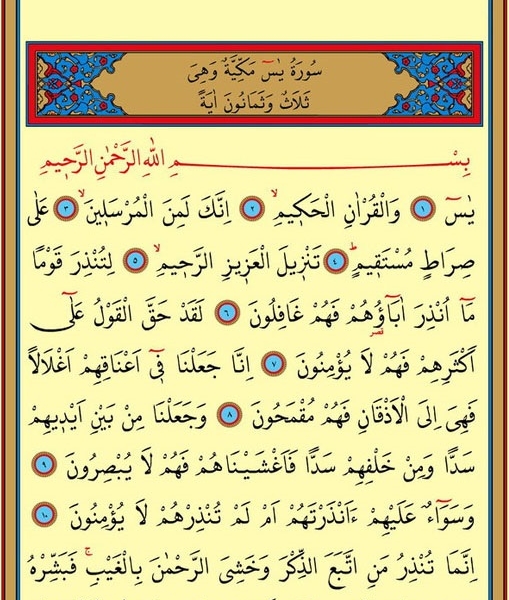 سُورَةُ يٰسٓ مَكِّيَّةٌ وَهِىَ
ثَلَاثٌ وَثَمَانُونَ اٰيَةً
بِسْمِ اللّٰهِ الرَّحْمٰنِ الرَّحٖيمِ
يٰسٓ ﴿١﴾ وَالْقُرْاٰنِ الْحَكٖيمِۙ ﴿٢﴾ اِنَّكَ لَمِنَ الْمُرْسَلٖينَۙ ﴿٣﴾ عَلٰى
صِرَاطٍ مُسْتَقٖيمٍؕ ﴿٤﴾ تَنْزٖيلَ الْعَزٖيزِ الرَّحٖيمِۙ ﴿٥﴾ لِتُنْذِرَ قَوْمًا
مَٓا اُنْذِرَ اٰبَٓاؤُ۬هُمْ فَهُمْ غَافِلُونَ ﴿٦﴾ لَقَدْ حَقَّ الْقَوْلُ عَلٰٓى
اَكْثَرِهِمْ فَهُمْ لَا يُؤْمِنُونَ ﴿٧﴾ اِنَّا جَعَلْنَا فٖٓى اَعْنَاقِهِمْ اَغْلَالًا
فَهِىَ اِلَى الْاَذْقَانِ فَهُمْ مُقْمَحُونَ ﴿٨﴾ وَجَعَلْنَا مِنْ بَيْنِ اَيْدٖيهِمْ
سَدًّا وَمِنْ خَلْفِهِمْ سَدًّا فَاَغْشَيْنَاهُمْ فَهُمْ لَا يُبْصِرُونَ ﴿٩﴾
وَسَوَٓاءٌ عَلَيْهِمْ ءَاَنْذَرْتَهُمْ اَمْ لَمْ تُنْذِرْهُمْ لَا يُؤْمِنُونَ ﴿١٠﴾
اِنَّمَا تُنْذِرُ مَنِ اتَّبَعَ الذِّكْرَ وَخَشِىَ الرَّحْمٰنَ بِالْغَيْبِۚ فَبَشِّرْهُ